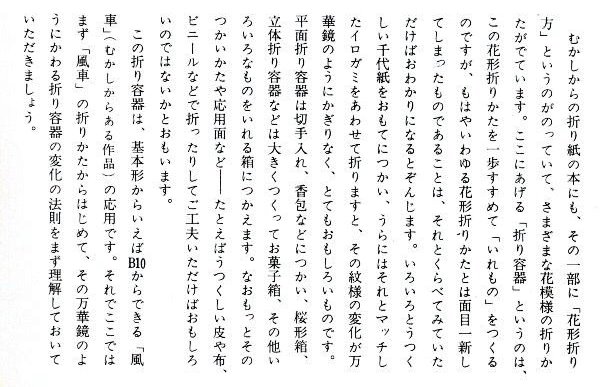 むかしからの折り紙の本にも、その一部に「花形折り
方」というのがのっていて、さまざまな花模様の折りか
たがでています。ここにあげる「折り容器」というのは、
この花形折りかたを一歩すすめて「いれもの」をつくる
のですが、もはやいわゆる花形折りかたとは面目一新し
てしまったものであることは、それとくらべてみていた
だけばおわかりになるとぞんじます。いろいろとうつく
しい千代紙をおもてにつかい、うらにはそれとマッチし
たイロガミをあわせて折りますと、その紋様の変化が万
華鏡のようにかぎりなく、とてもおもしろいものです。
平面折り容器は切手入れ、香包などにつかい、桜形箱、
立体折り容器などは大きくつくってお菓子箱、その他い
ろいろなものをいれる箱につかえます。なおもっとその
つかいかたや応用面など——たとえばうつくしい皮や布、
ビニールなどで折ったりしてご工夫いただけばおもしろ
いのではないかとおもいます。
この折り容器は、基本形からいえばB10からできる「風
車」(むかしからある作品)の応用です。それでここでは
まず「風車」の折りかたからはじめて、その万華鏡のよ
うにかわる折り容器の変化の法則をまず理解しておいて
いただきましょう。